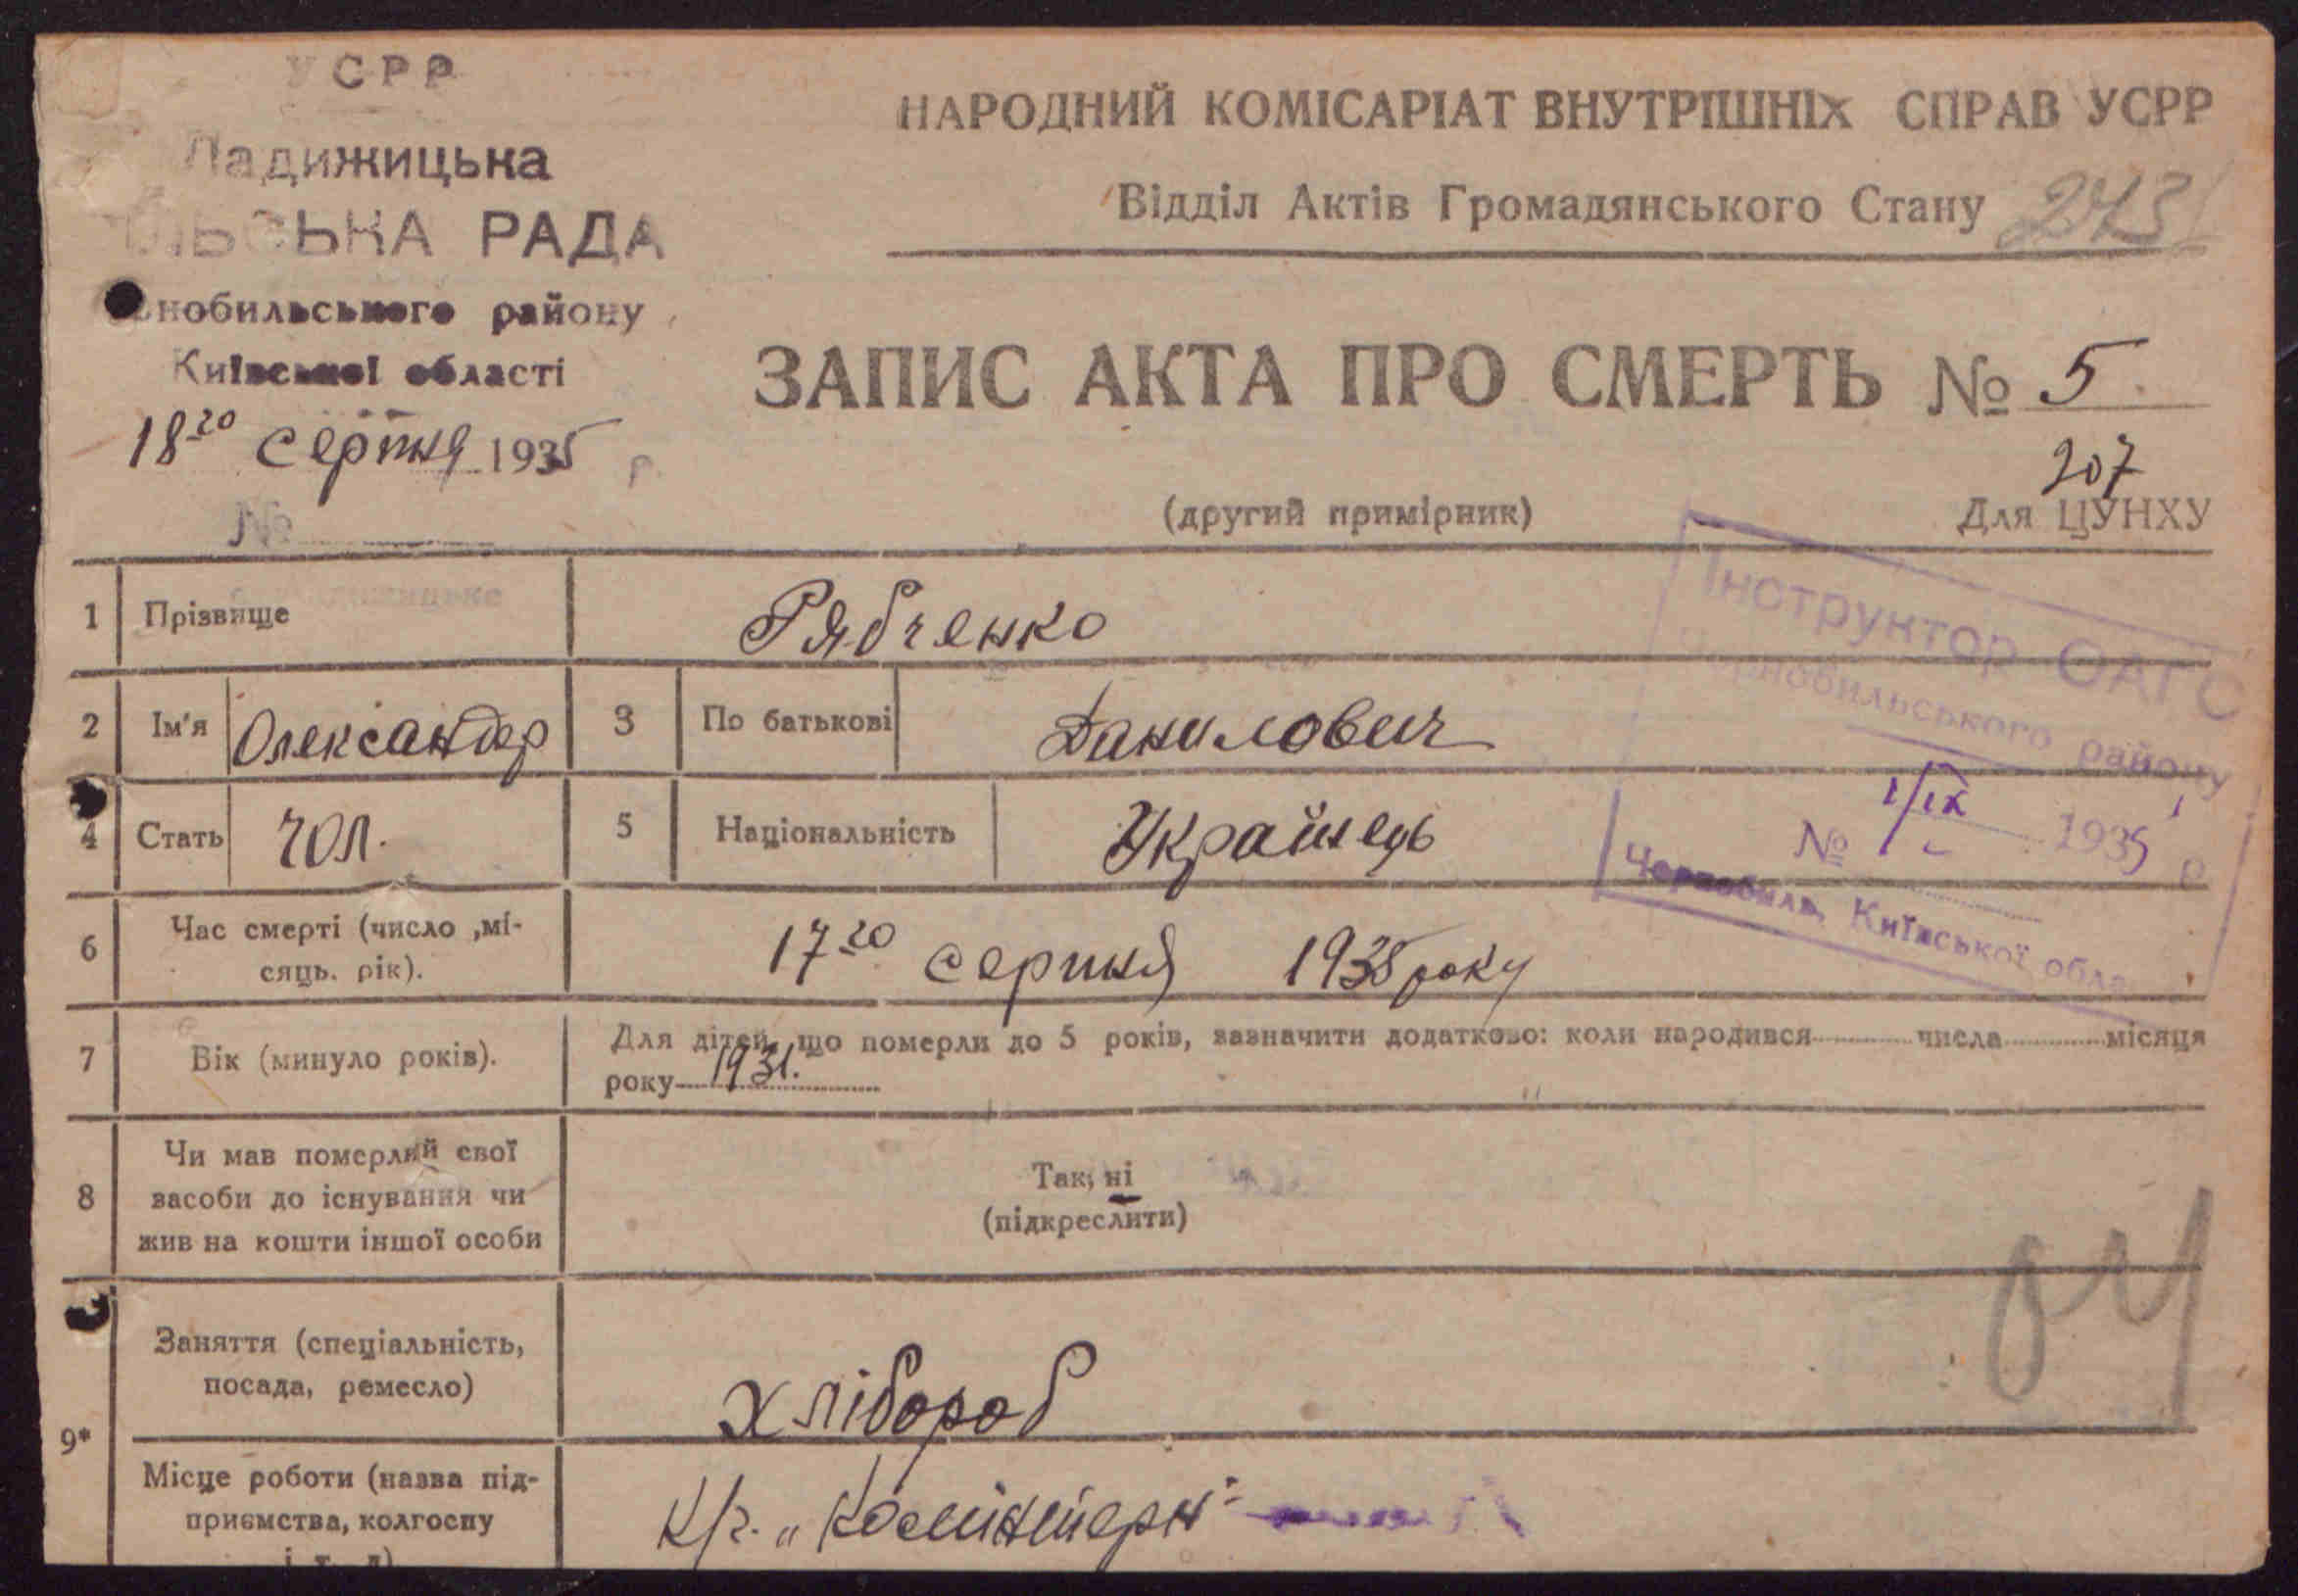 УСРР
Ладижицька
СІЛЬСЬКА РАДА
нобильського району
Київської області
18-20 серпня 1935 р.
№
НАРОДНИЙ КОМІСАРІАТ ВНУТРІШНІХ СПРАВ УСРР
Відділ Актів Громадянського Стану
ЗАПИС АКТА ПРО СМЕРТЬ № 5
207
(другий примірник) Для ЦУНХУ
Інструктор ОАГС
Чорнобильського району
№ 1/ІХ 1935 р.
Чорнобиль, Київської обла
1 Прізвище Рябченко
2 Ім'я Олександер 3 По батькові Данилович
4 Стать чол. 5 Національність Українець
6 Час смерті (число ,мі-
сяць. рік).
17-20 серпня 1935 року
7 Вік (минуло років).
Для дітей, що померли до 5 років, зазначити додатково: коли народився числа місяця
року 1931.
8 Чи мав померлий свої
засоби до існування чи
жив на кошти іншої особи
Так, ні
(підкреслити)
9* Заняття (спеціальність,
посада, ремесло)
Хлібороб
Місце роботи (назва під-
приємства, колгоспу
і т. д)
К/г. „Комінтерн"